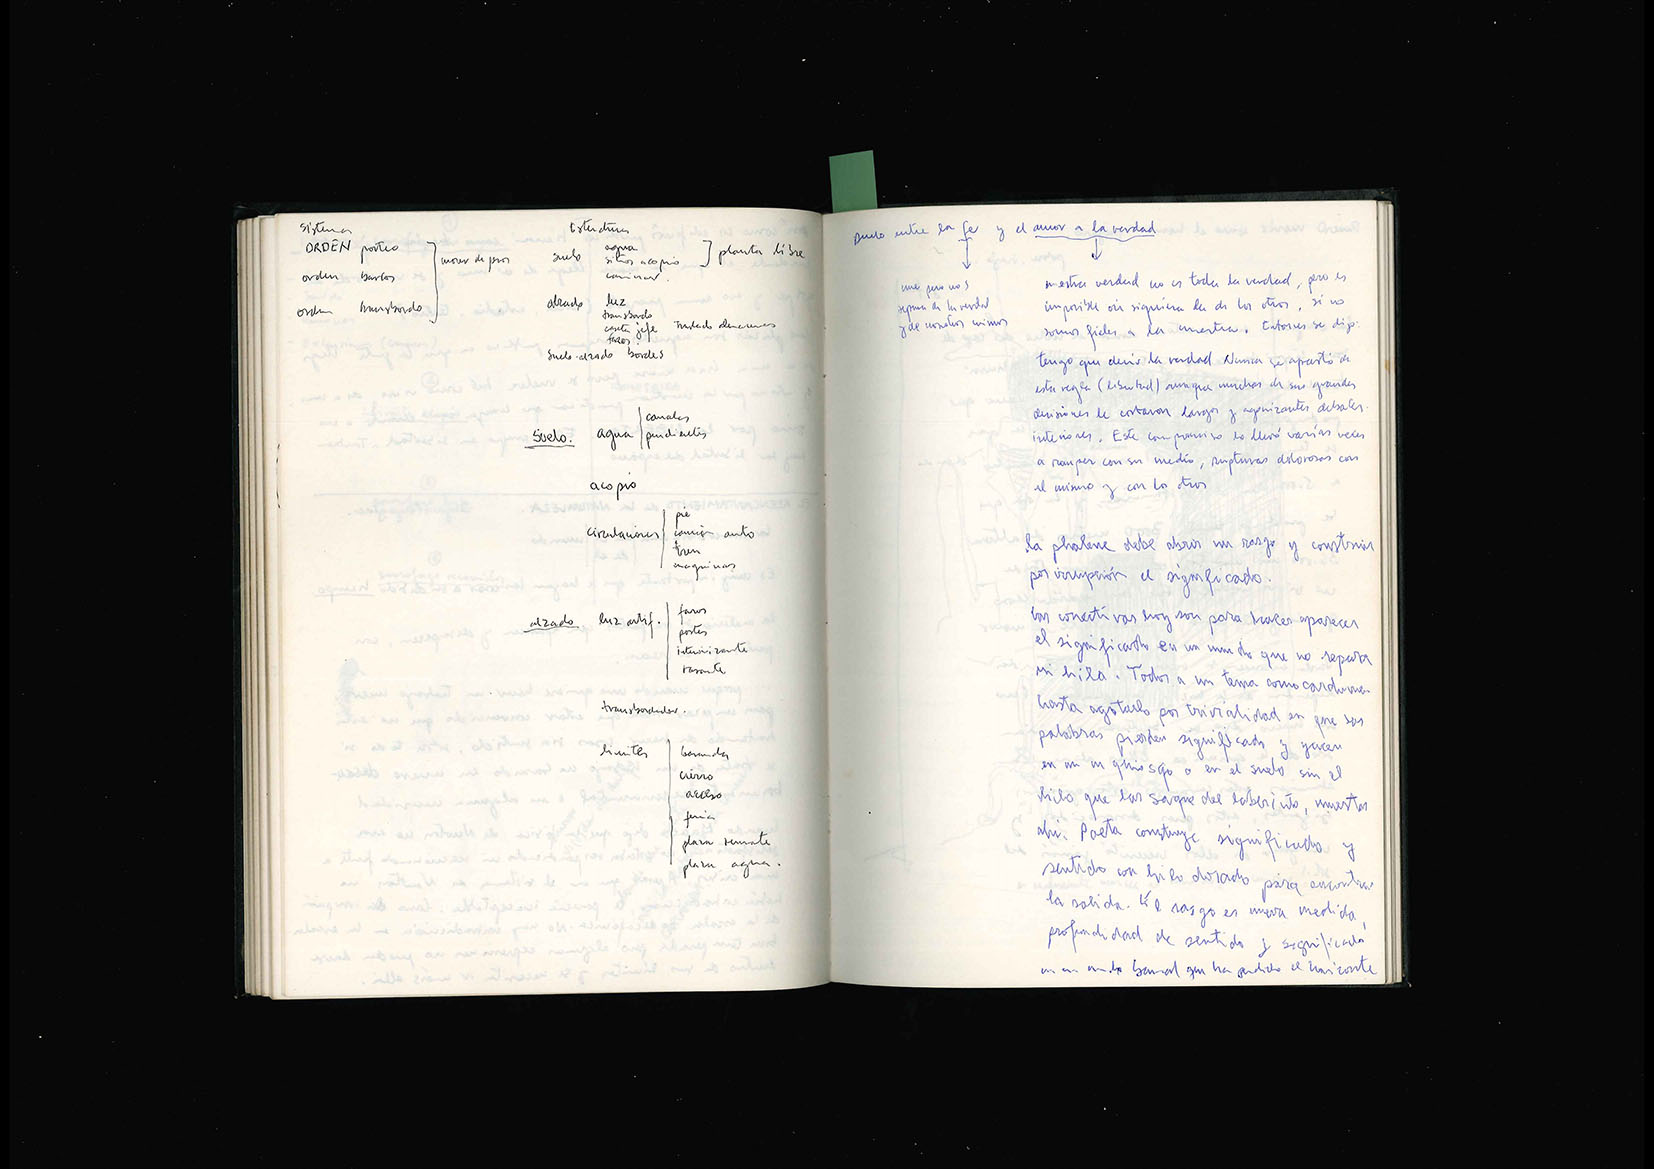 Sistema
ORDEN portico
orden barcos
orden transbordo
Estructura
suelo
agua
sitios acopio
caminar.
planta libre
alzado
luz
transbordo
caseta jefe
faros.
traslado
suelo-alzado bordes
Suelo. agua
canales
pendientes
acopio
circulaciones
pie
camión auto
tren
maquinas
alzado luz artif.
faros
postes
rasante
transbordador.
limites
baranda
cierro
acceso
feria
plaza remate
plaza agua.
Duelo entre la fe y el amor a la verdad
une pero nos
separa de la verdad
y de nosotros mismos
nuestra verdad no es toda la verdad, pero es
imposible oir siquiera la de los otros, si no
somos fieles a la nuestra. Entonces se dijo.
tengo que decir la verdad Nunca se apartó de
esta regla (libertad) aunque muchas de sus grandes
decisiones le costaron largos y agonizantes debates
interiores. Este compromiso lo llevó varias veces
a romper con su medio, rupturas dolorosas con
el mismo y con los otros
la phalene debe abrir un rasgo y construir
por irrupción el significado.
Las conectivas hoy son para hacer aparecer
el significado en un mundo que no repara
ni hila. Todos a un tema como cardumen
hasta agotarlo por trivialidad en que las
palabras pierden significado y yacen
en un quiosgo o en el suelo sin el
hilo que las saque del laberinto, muertas
ahi. Poeta construye significado y
sentido con hilo dorado para encontrar
la salida. El rasgo es nueva medida,
profundidad de sentido y significado
en un mundo banal que ha perdido el horizonte